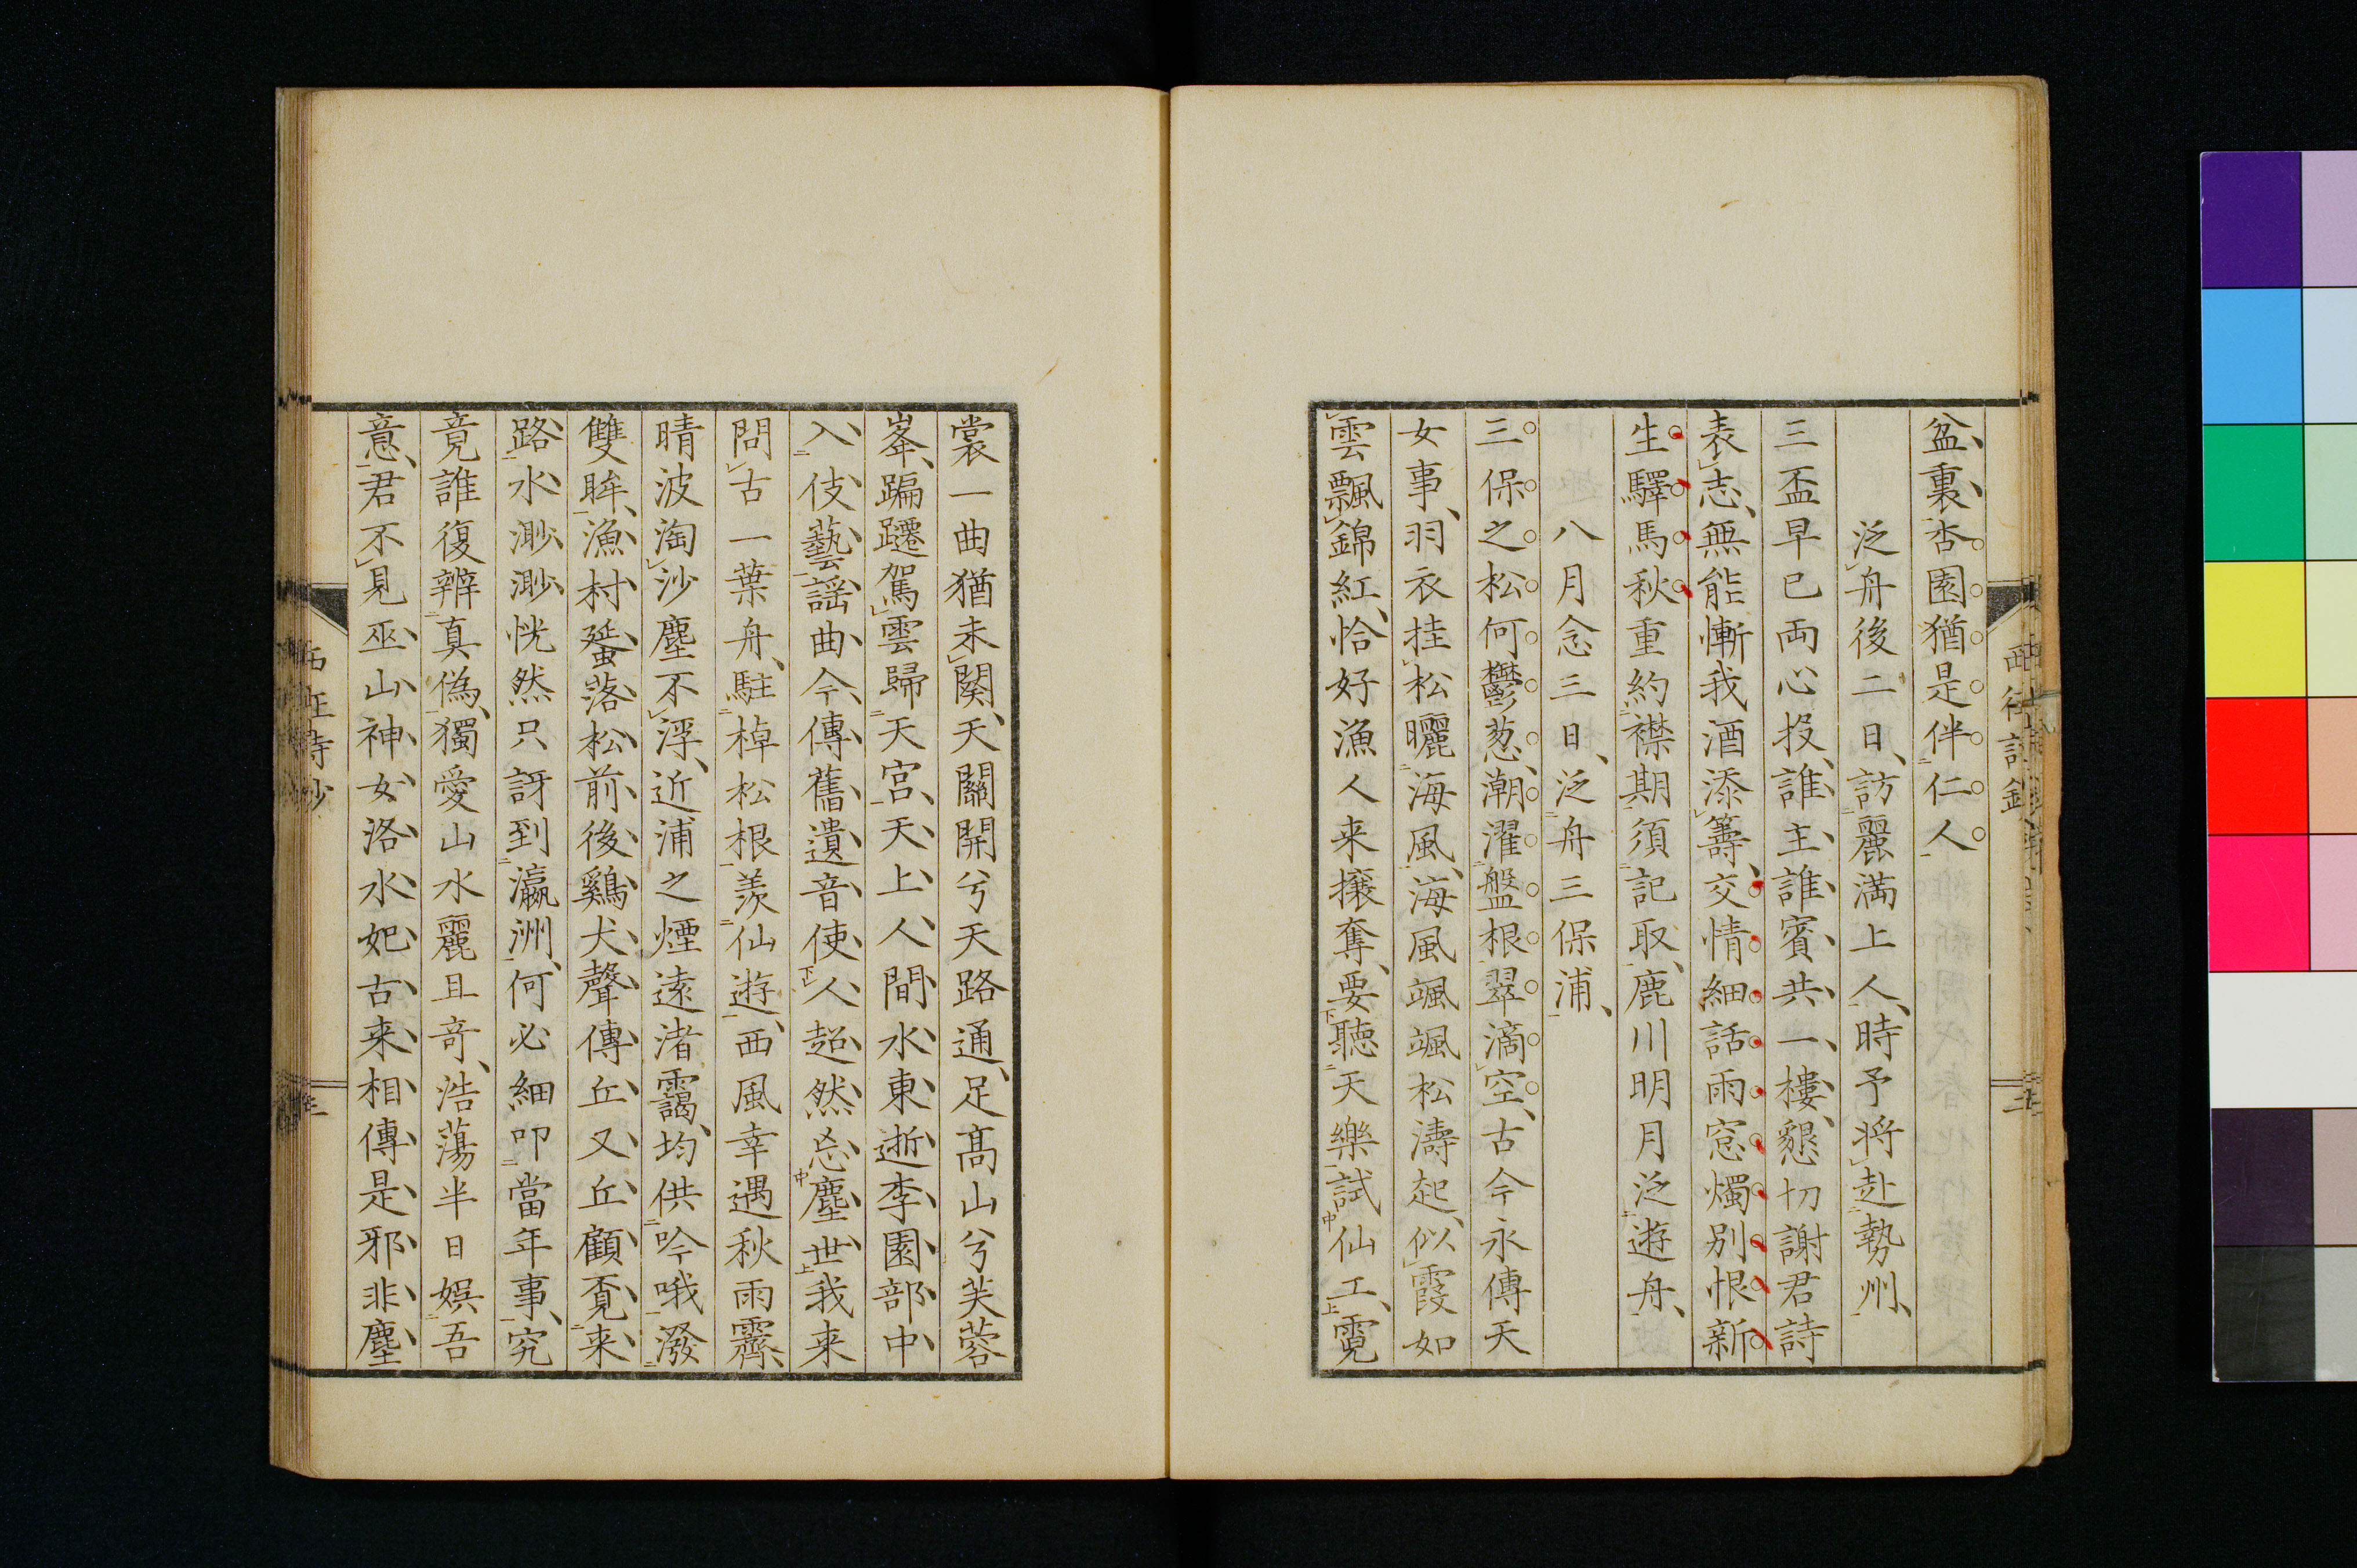 盆裏杏園猶是伴仁人
泛舟後二日訪麗満上人時予将赴勢州
三盃早已両心投誰主誰賓共一樓懇切謝君詩
表志無能慚我酒添籌交情細話雨窓燭別恨新
生驛馬秋重約襟期須記取鹿川明月泛遊舟
八月念三日泛舟三保浦
三保之松何鬱葱潮濯盤根翠滴空古今永傳天
女事羽衣挂松曬海風海風颯颯松濤起似霞如
雲飄錦紅恰好漁人来攘奪要聽天樂試仙工霓
裳一曲猶未闋天關開兮天路通足髙山兮芙蓉
峯蹁躚駕雲歸天宮天上人間水東逝李園部中
入伎藝謡曲今傳舊遺音使人超然忘塵世我来
問古一葉舟駐棹松根羨仙遊西風幸遇秋雨霽
晴波淘沙塵不浮近浦之煙遠渚靄均供吟哦潑
雙眸漁村蜑落松前後鷄犬聲傳丘又丘顧覔来
路水渺渺恍然只訝到瀛洲何必細叩當年事究
竟誰復辨真偽獨愛山水麗且竒浩蕩半日娯吾
意君不見巫山神女洛水妃古来相傳是邪非塵